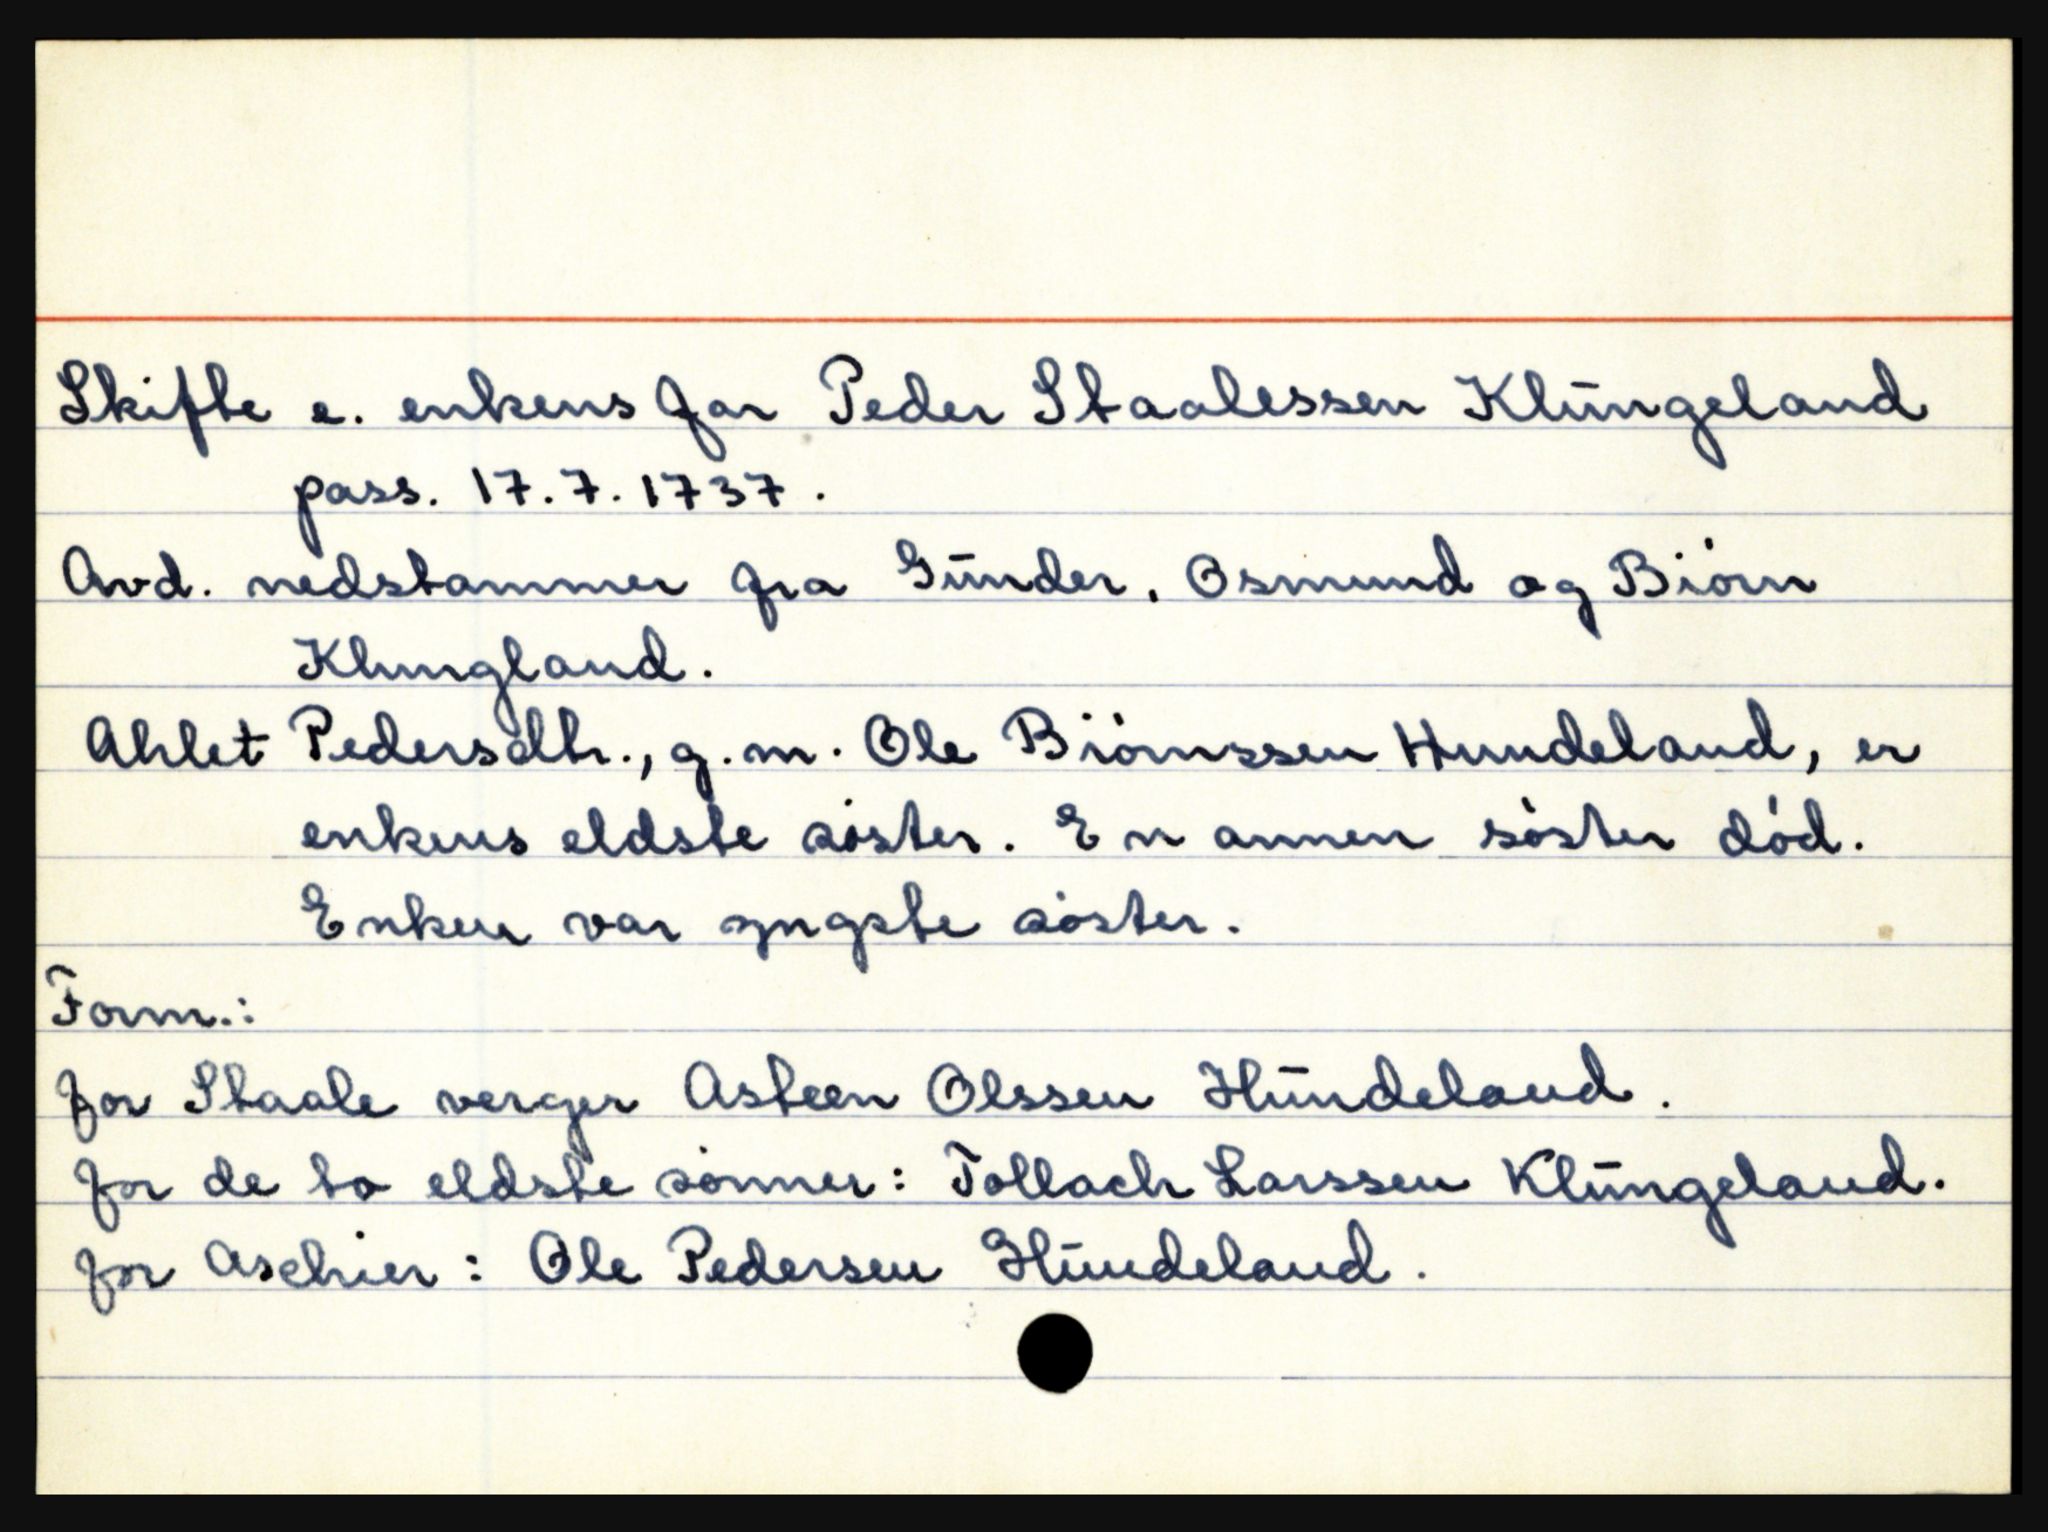 Skifte e. enkens far Peder Staalessen Klūngeland
pass. 17.7.1737.
Avd. nedstammer fra Gūnder, Osmund og Biórn
Klungland.
Ahlet Pedersdtr., g.m. Ole Biórnssen Hundeland, er
enkens eldste sóster. En annen sóster dód.
Enken var yngste sóster.
Form.:
for Staale verger Asteen Olssen Hūndeland.
for de to eldste sónner: Tollach Larssen Klūngeland.
for Aschier: Ole Pedersen Hūndeland.